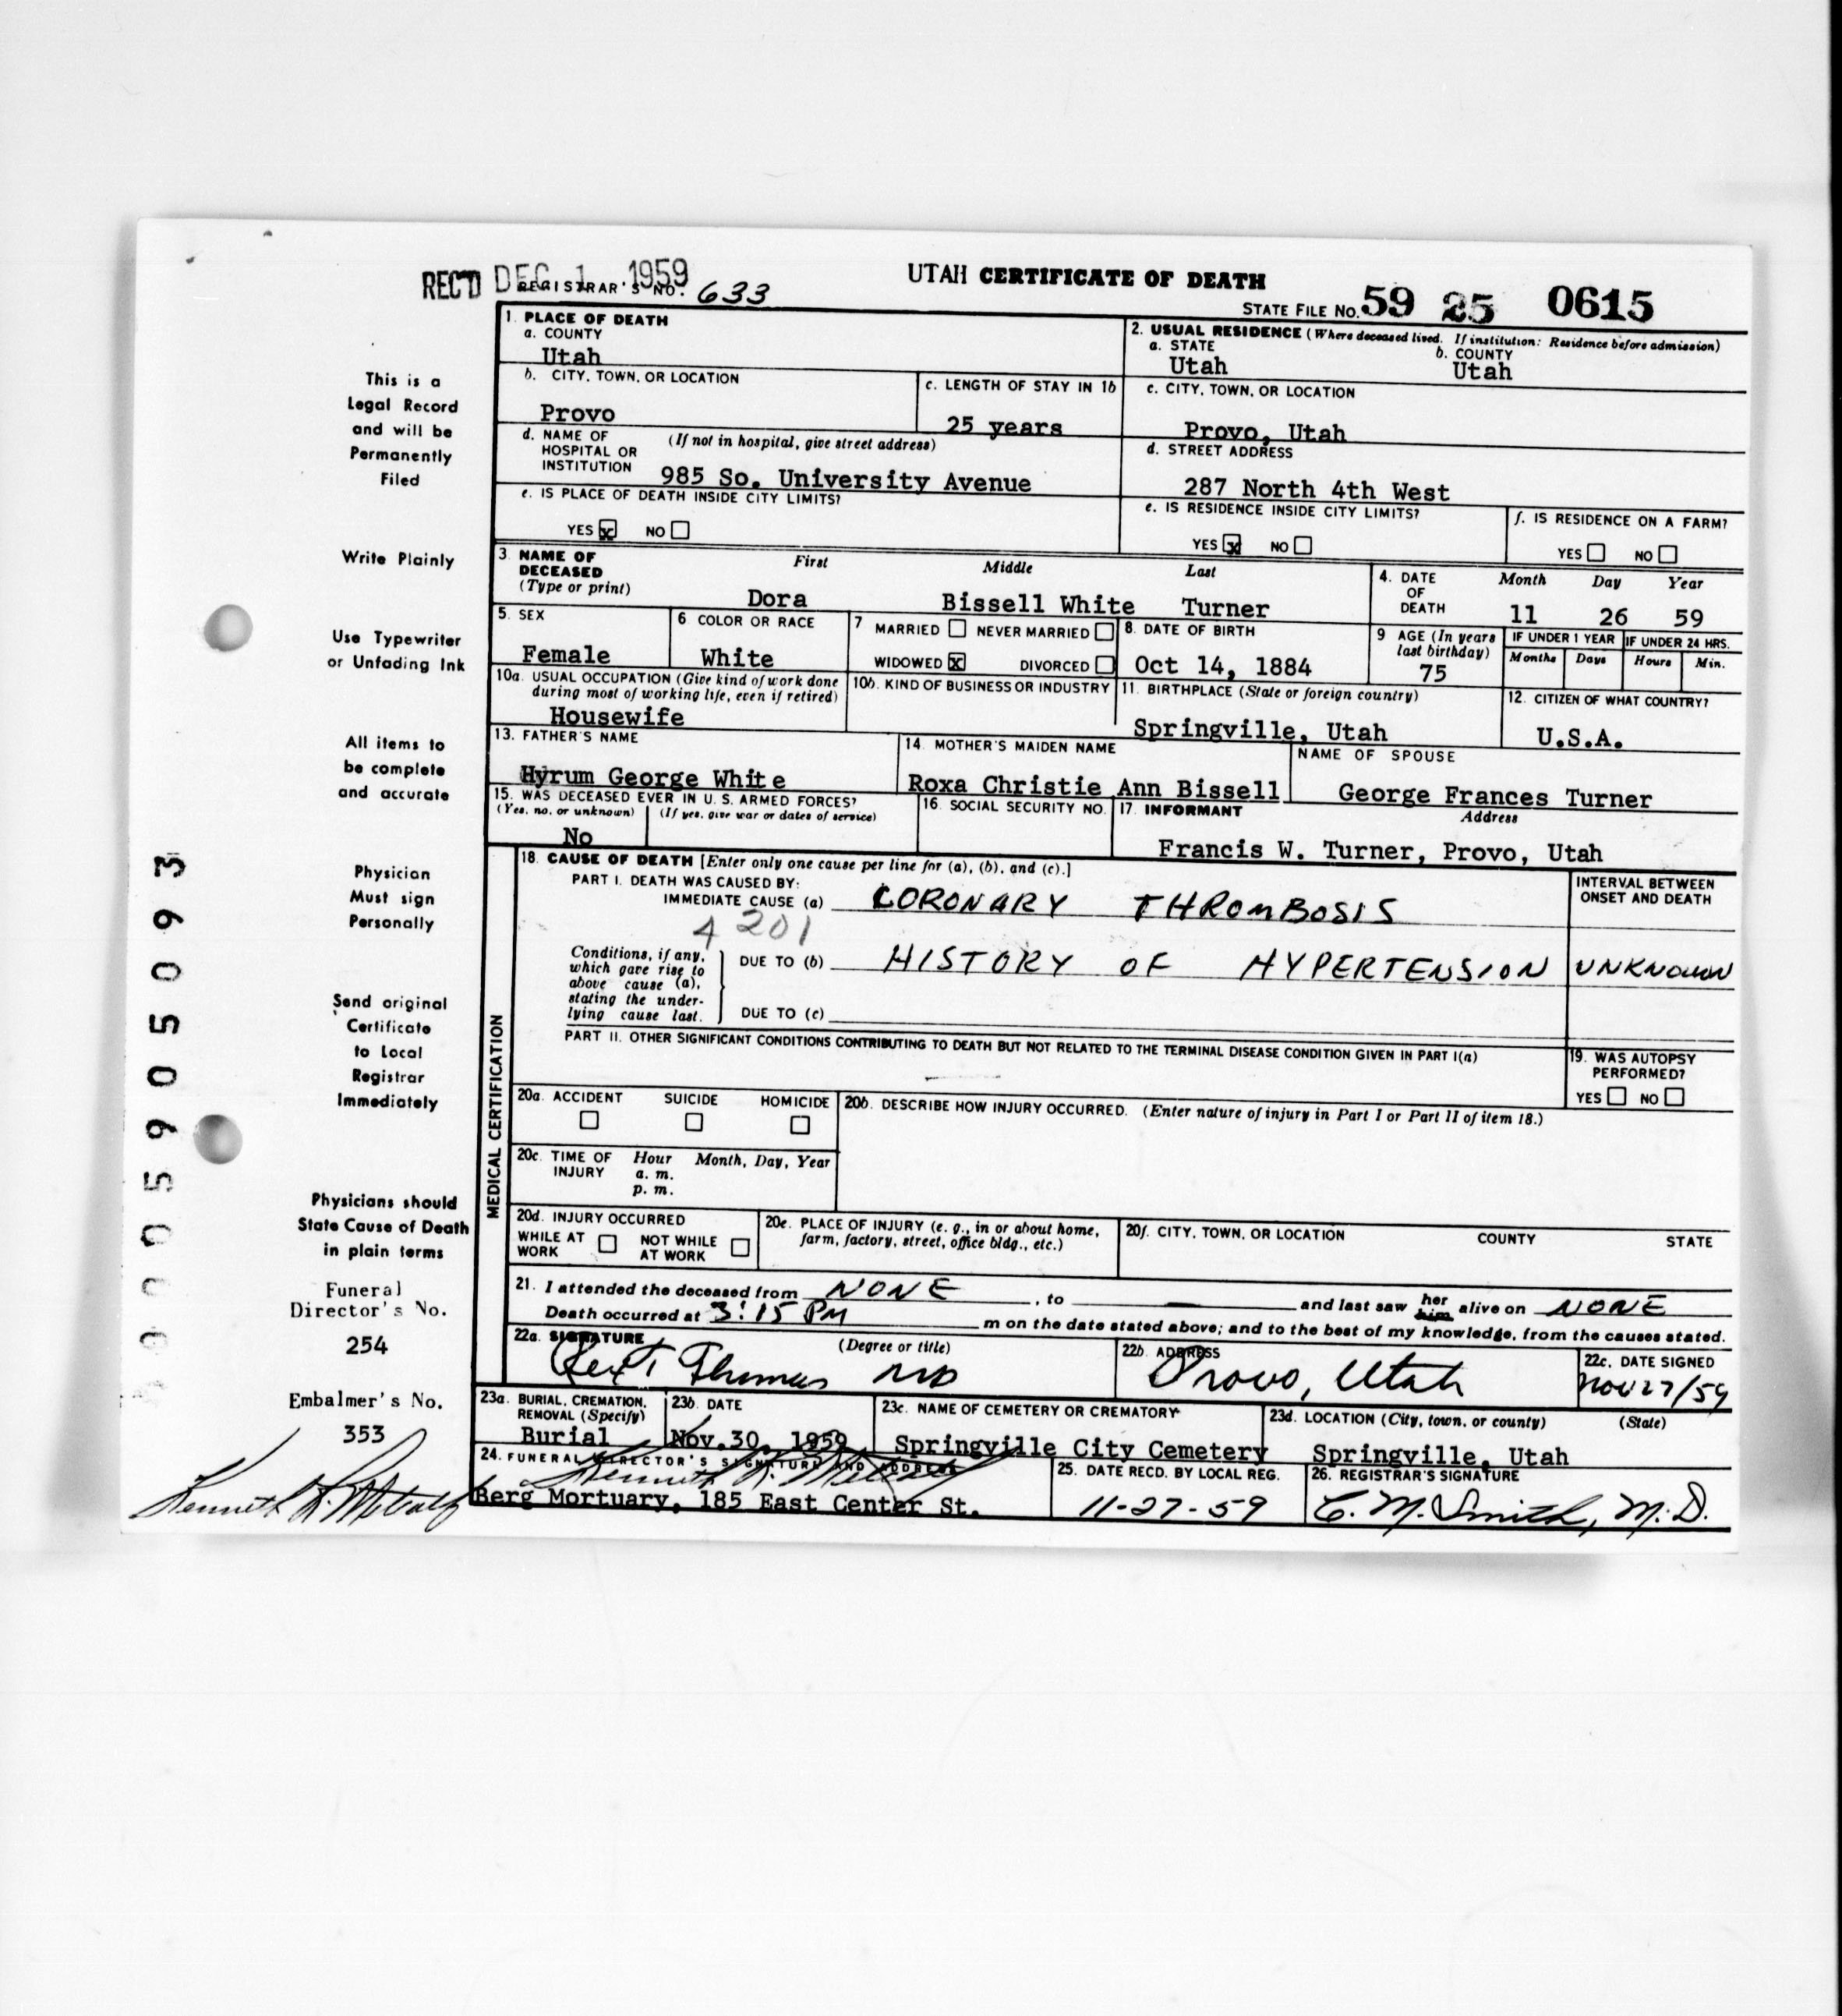 REC'D DEC 1 1959
REGISTRAR'S NO. 633
UTAH CERTIFICATE OF DEATH
STATE FILE NO. 59 25 0615
This is a
Legal Record
and will be
Permanently
Filed
Write Plainly
Use Typewriter
or Unfading Ink
All items to
be complete
and accurate
Physician
Must sign
Personally
Send original
Certificate
to Local
Registrar
Immediately
Physicians should
State Cause of Death
in plain terms
Funeral
Director's No.
254
Embalmer's No.
353
Kenneth R. Metcalf
1. PLACE OF DEATH
a. COUNTY
Utah
2. USUAL RESIDENCE (Where deceased lived. If institution: Residence before admission)
a. STATE b. COUNTY
Utah Utah
b. CITY, TOWN, OR LOCATION
Provo
c. LENGTH OF STAY IN 1b
25 years
c. CITY, TOWN, OR LOCATION
Provo, Utah
d. NAME OF HOSPITAL OR INSTITUTION (If not in hospital, give street address)
985 So. University Avenue
d. STREET ADDRESS
287 North 4th West
e. IS PLACE OF DEATH INSIDE CITY LIMITS?
YES x NO
e. IS RESIDENCE INSIDE CITY LIMITS?
YES x NO
f. IS RESIDENCE ON A FARM?
YES NO
3. NAME OF DECEASED (Type or print) First Middle Last
Dora Bissell White Turner
4. DATE OF DEATH Month Day Year
11 26 59
5. SEX
Female
6. COLOR OR RACE
White
7 MARRIED NEVER MARRIED
WIDOWED x DIVORCED
8. DATE OF BIRTH
Oct 14, 1884
9 AGE (In years last birthday)
75
IF UNDER 1 YEAR IF UNDER 24 HRS.
Months Days Hours Min.
10a. USUAL OCCUPATION (Give kind of work done during most of working life, even if retired)
Housewife
10b. KIND OF BUSINESS OR INDUSTRY
11. BIRTHPLACE (State or foreign country)
Springville, Utah
12. CITIZEN OF WHAT COUNTRY?
U.S.A.
13. FATHER'S NAME
Hyrum George White
14. MOTHER'S MAIDEN NAME
Roxa Christie Ann Bissell
NAME OF SPOUSE
George Frances Turner
15. WAS DECEASED EVER IN U. S. ARMED FORCES?
(Yes, no, or unknown) (If yes, give war or dates of service)
No
16. SOCIAL SECURITY NO.
17. INFORMANT Address
Francis W. Turner, Provo, Utah
MEDICAL CERTIFICATION
18. CAUSE OF DEATH [Enter only one cause per line for (a), (b), and (c).]
PART I. DEATH WAS CAUSED BY:
IMMEDIATE CAUSE (a) CORONARY THROMBOSIS
4201
INTERVAL BETWEEN ONSET AND DEATH
Conditions, if any, which gave rise to above cause (a), stating the underlying cause last.
DUE TO (b) HISTORY OF HYPERTENSION UNKNOWN
DUE TO (c)
PART II. OTHER SIGNIFICANT CONDITIONS CONTRIBUTING TO DEATH BUT NOT RELATED TO THE TERMINAL DISEASE CONDITION GIVEN IN PART I(a)
19. WAS AUTOPSY PERFORMED?
YES NO
20a. ACCIDENT SUICIDE HOMICIDE
20b. DESCRIBE HOW INJURY OCCURRED. (Enter nature of injury in Part I or Part II of item 18.)
20c. TIME OF INJURY Hour Month, Day, Year
a. m.
p. m.
20d. INJURY OCCURRED
WHILE AT WORK NOT WHILE AT WORK
20e. PLACE OF INJURY (e. g., in or about home, farm, factory, street, office bldg., etc.)
20f. CITY, TOWN, OR LOCATION COUNTY STATE
21. I attended the deceased from NONE, to — and last saw her him alive on NONE
Death occurred at 3:15 PM m on the date stated above; and to the best of my knowledge, from the causes stated.
22a. SIGNATURE (Degree or title)
Rex T Thomas MD
22b. ADDRESS
Provo, Utah
22c. DATE SIGNED
Nov 27/59
23a. BURIAL, CREMATION, REMOVAL (Specify)
Burial
23b. DATE
Nov.30, 1959
23c. NAME OF CEMETERY OR CREMATORY
Springville City Cemetery
23d. LOCATION (City, town, or county) (State)
Springville, Utah
24. FUNERAL DIRECTOR'S SIGNATURE AND ADDRESS
Kenneth R. Metcalf
Berg Mortuary, 185 East Center St.
25. DATE RECD. BY LOCAL REG.
11-27-59
26. REGISTRAR'S SIGNATURE
C. M. Smith, M.D.